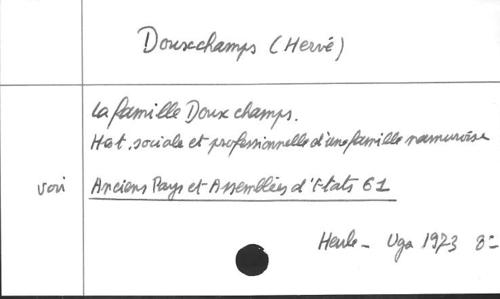 Douxchamps (Hervé)
La famille Doux champs.
Hist. sociale et professionnelle d'une famille namuroise
voir Anciens Pays et Assemblées d'Etats 61
Heule - Uga 1973 8°